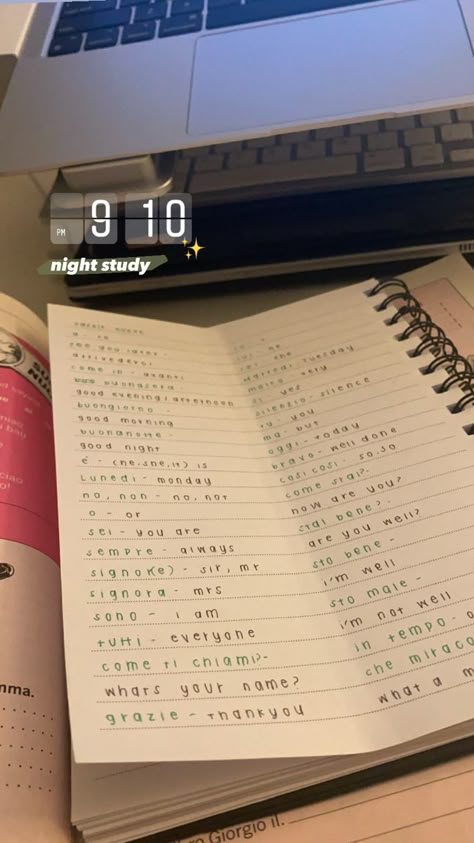 PM 9 10
night study
see you later -
arrivederci
come in - avanti
buonasera -
good evening/afternoon
buongiorno -
good morning
buonanotte -
good night
è - (he, she, it) is
lunedì - monday
no, non - no, not
o - or
sei - you are
sempre - always
signor(e) - sir, mr
signora - mrs
sono - i am
tutti - everyone
come ti chiami?-
whats your name?
grazie - thankyou
tuesday
very
yes
silenzio - silence
tu - you
ma - but
oggi - today
bravo - well done
così così - so, so
come stai?-
how are you?
stai bene? -
are you well?
sto bene -
i'm well
sto male -
i'm not well
in tempo -
che miraco
what a m
mma.
Giorgio il.